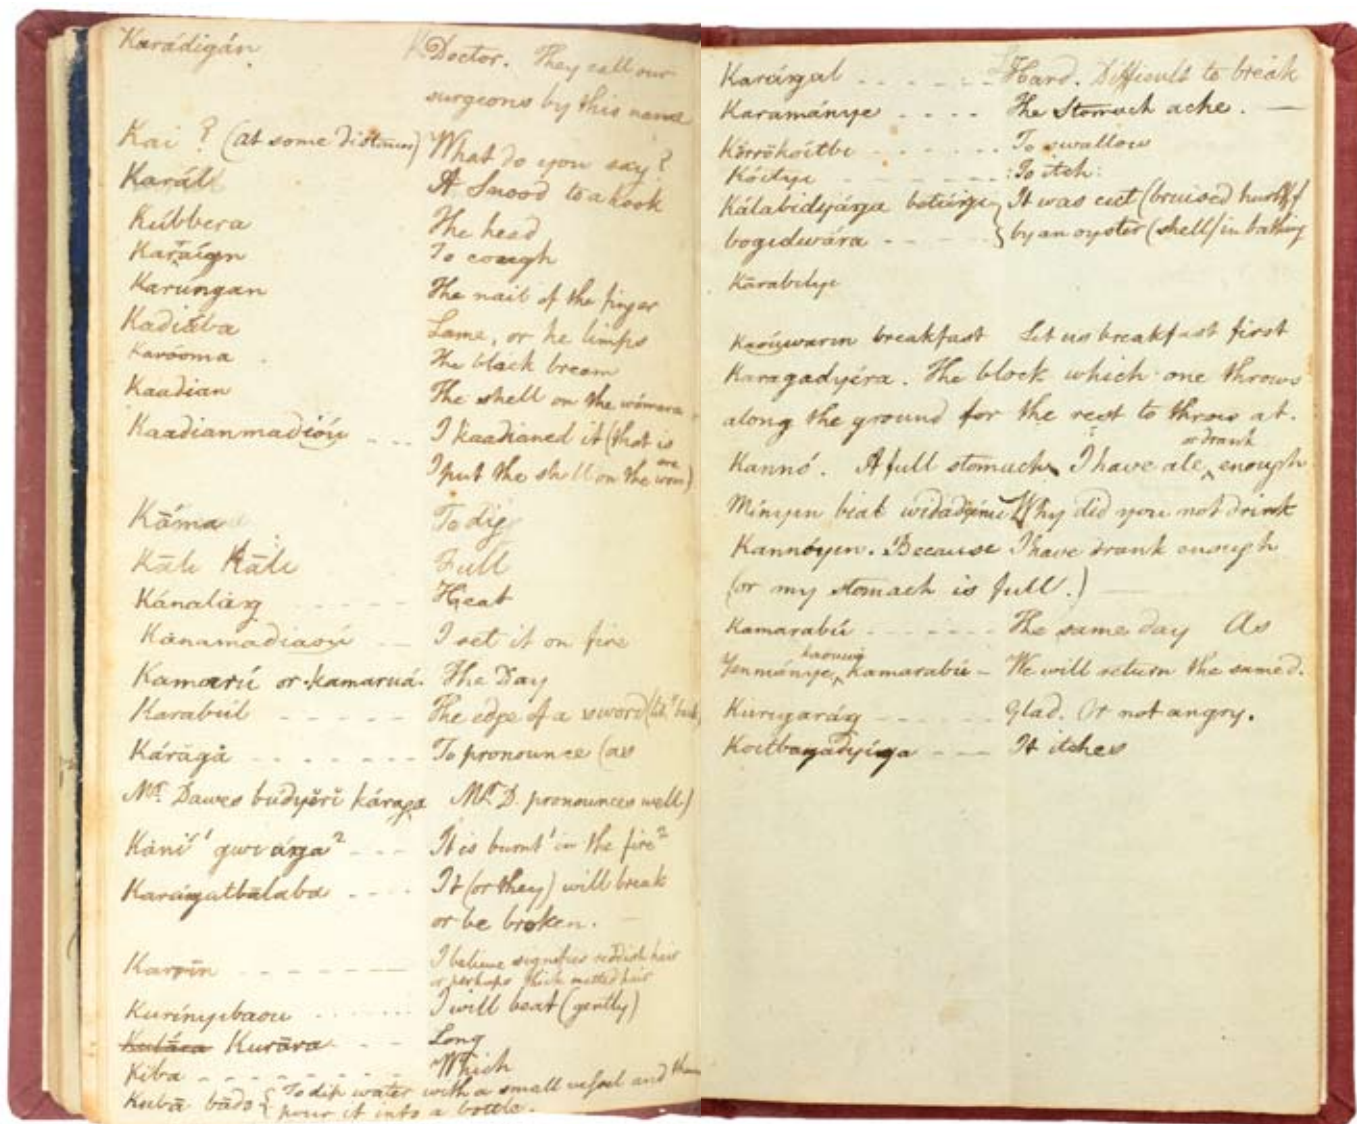 Karádigán Doctor. They call our
surgeons by this name
Kai? (at some distance) What do you say?
Karál A Snood to a hook
Kúbbera The head
Karáign To cough
Karúngan The nail of the finger
Kadiába Lame, or he limps
Karóoma The black bream
Kaadian The shell on the wómera
Kaadianmadióu I kaadianed it (that is
I put the shell on the wom)
Kāma To dig
Kāli Kāli Full
Kánaláng Heat
Kanamadiaoú I set it on fire
Kamarú or kamaruá. The Day
Karabúl The edge of a sword
Káraga To pronounce (as
Mr. Dawes búdyĕrĭ káraga Mr. D. pronounces well)
Kāni 1 gwiánga 2 It is burnt 1 in the fire 2
Karángatbālaba It (or they) will break
or be broken.
I believe signifies reddish hair
or perhaps thick matted hair
Kurínyibaou I will beat (gently)
Kurāra Long
Kiba Which
Kubā bādo { To dip water with a small vessel and then
pour it into a bottle.
Karángal Hard. Difficult to break
Karamánye The Stomach ache.
Kŏrrŏkoítbe To swallow
Kóitye To itch
Kálabidyánga boténga } It was cut (bruised hurt &c
bogidwára } by an oyster (shell) in bathing
Kārabilye
Kaoúwarin breakfast Let us breakfast first
Karagadyéra. The block which one throws
along the ground for the rest to throw at.
Kannó. A full stomach. I have ate or drank enough
Mínyin biat widadyémi Why did you not drink
Kannóyen. Because I have drank enough
(or my stomach is full.)
Kamarabú The same day As
Yenmánye kaouwi kamarabú We will return the same d.
Kurugaráng Glad. Or not angry.
Koitbagadyánga It itches